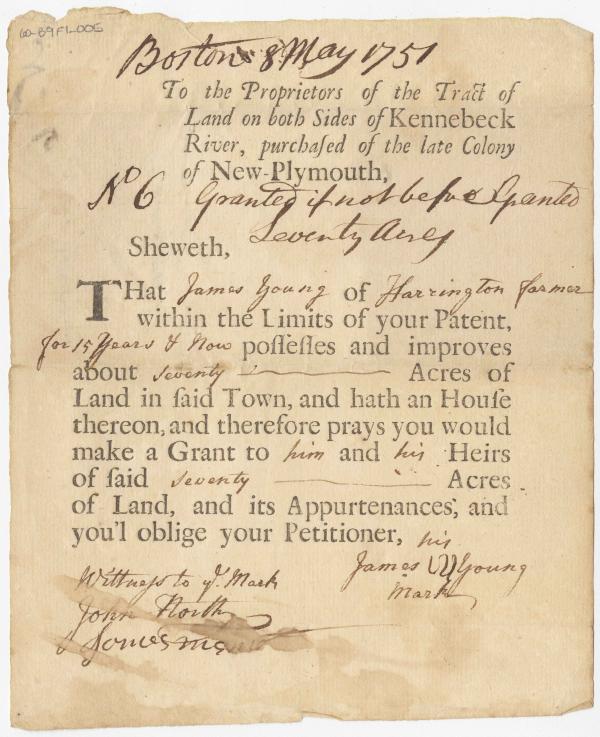 60-B9F1-005
Boston 8 May 1751
To the Proprietors of the Tract of
Land on both Sides of Kennebeck
River, purchaſed of the late Colony
of New-Plymouth,
No 6 Granted if not before Granted
Seventy Acres
Sheweth,
THat James Young of Harrington farmer
within the Limits of your Patent,
for 15 Years & Now poſſeſſes and improves
about seventy Acres of
Land in ſaid Town, and hath an Houſe
thereon, and therefore prays you would
make a Grant to him and his Heirs
of ſaid seventy Acres
of Land, and its Appurtenances, and
you'l oblige your Petitioner,
his
James Young
Mark
Wittness to ye. Mark
John North
James